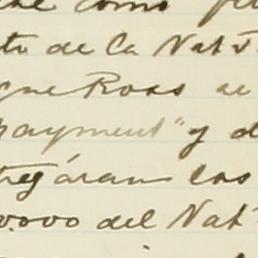 como
de la Nat
que Ross se
payment" y d
tregáran los
0.000 del Nat